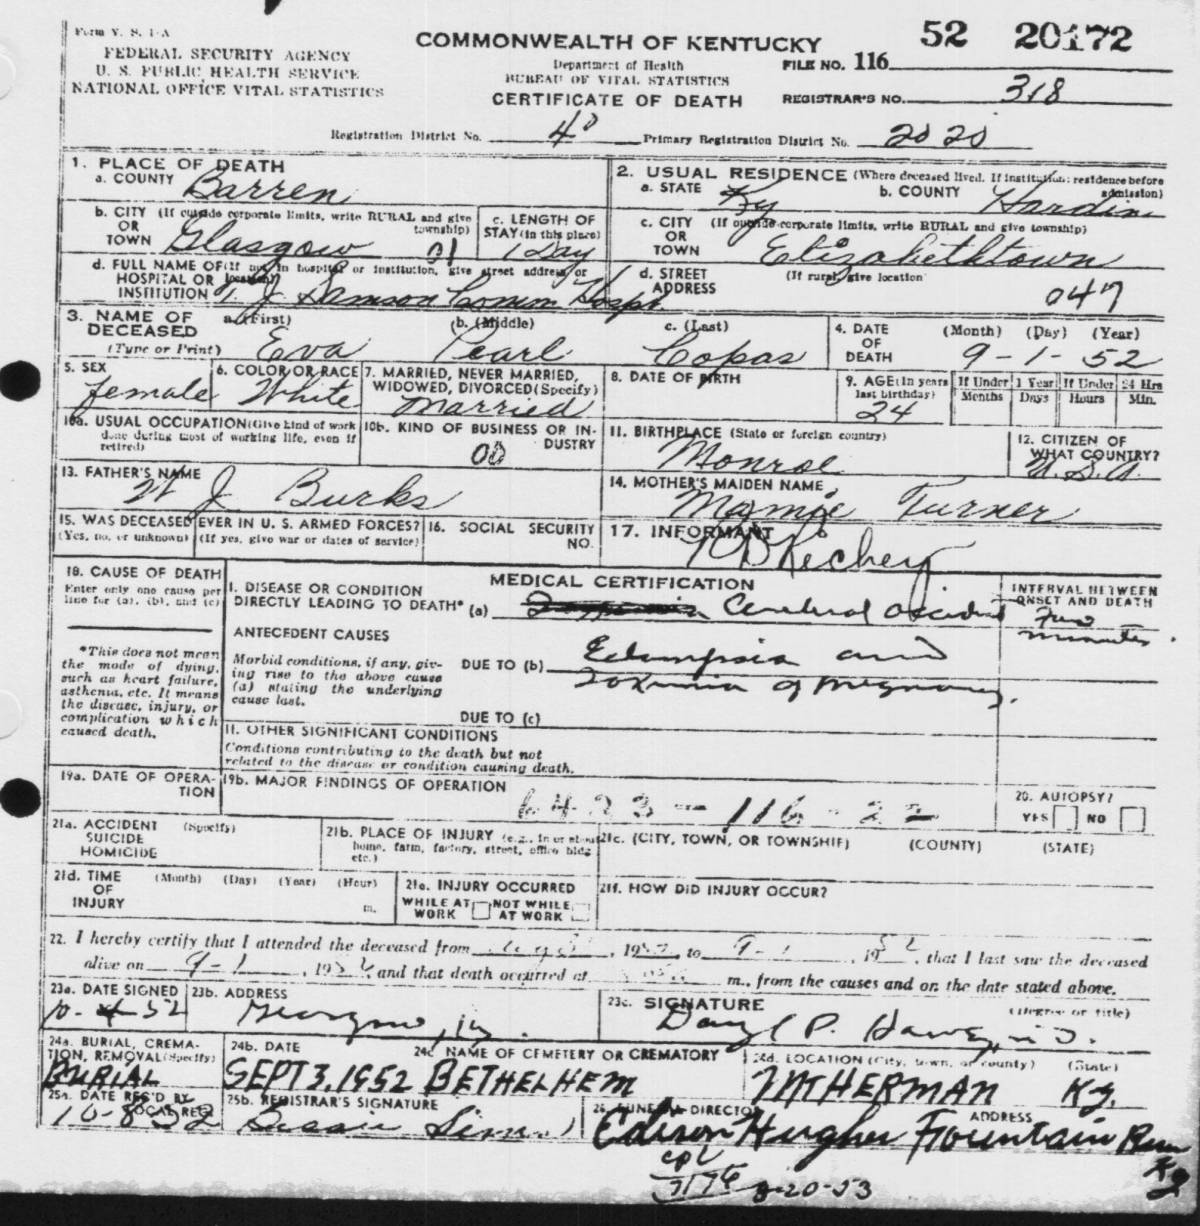 Form V. S. 1-A
FEDERAL SECURITY AGENCY
U. S. PUBLIC HEALTH SERVICE
NATIONAL OFFICE VITAL STATISTICS
COMMONWEALTH OF KENTUCKY
Department of Health
BUREAU OF VITAL STATISTICS
CERTIFICATE OF DEATH
52 20172
FILE NO. 116
REGISTRAR'S NO. 318
Registration District No. 40 Primary Registration District No. 2020
1. PLACE OF DEATH
a. COUNTY Barren
2. USUAL RESIDENCE (Where deceased lived. If institution: residence before admission)
a. STATE Ky b. COUNTY Hardin
b. CITY (If outside corporate limits, write RURAL and give township)
OR
TOWN Glasgow 01
c. LENGTH OF STAY (in this place)
1 Day
c. CITY (If outside corporate limits, write RURAL and give township)
OR
TOWN Elizabethtown
d. FULL NAME OF (If not in hospital or institution, give street address or location)
HOSPITAL OR
INSTITUTION T. J. Samson Comm Hospt.
d. STREET ADDRESS (If rural, give location)
047
3. NAME OF DECEASED
(Type or Print)
a. (First) b. (Middle) c. (Last)
Eva Pearl Copas
4. DATE OF DEATH (Month) (Day) (Year)
9-1-52
5. SEX
female
6. COLOR OR RACE
White
7. MARRIED, NEVER MARRIED, WIDOWED, DIVORCED (Specify)
Married
8. DATE OF BIRTH
9. AGE (In years last birthday)
24
If Under 1 Year If Under 24 Hrs
Months Days Hours Min.
10a. USUAL OCCUPATION (Give kind of work done during most of working life, even if retired)
10b. KIND OF BUSINESS OR INDUSTRY
00
11. BIRTHPLACE (State or foreign country)
Monroe
12. CITIZEN OF WHAT COUNTRY?
U.S.A.
13. FATHER'S NAME
W J Burks
14. MOTHER'S MAIDEN NAME
Mamie Turner
15. WAS DECEASED EVER IN U. S. ARMED FORCES?
(Yes, no, or unknown) (If yes, give war or dates of service)
16. SOCIAL SECURITY NO.
17. INFORMANT
18. CAUSE OF DEATH
Enter only one cause per line for (a), (b), and (c)
*This does not mean the mode of dying, such as heart failure, asthenia, etc. It means the disease, injury, or complication which caused death.
MEDICAL CERTIFICATION
I. DISEASE OR CONDITION DIRECTLY LEADING TO DEATH* (a) Cerebral accident
INTERVAL BETWEEN ONSET AND DEATH
Few minutes
ANTECEDENT CAUSES
Morbid conditions, if any, giving rise to the above cause (a) stating the underlying cause last.
DUE TO (b) Eclampsia and
Toximia of Pregnancy.
DUE TO (c)
II. OTHER SIGNIFICANT CONDITIONS
Conditions contributing to the death but not related to the disease or condition causing death.
19a. DATE OF OPERATION
19b. MAJOR FINDINGS OF OPERATION
6423-116-22
20. AUTOPSY?
YES NO
21a. ACCIDENT (Specify)
SUICIDE
HOMICIDE
21b. PLACE OF INJURY (e.g., in or about home, farm, factory, street, office bldg etc.)
21c. (CITY, TOWN, OR TOWNSHIP) (COUNTY) (STATE)
21d. TIME OF INJURY (Month) (Day) (Year) (Hour) m.
21e. INJURY OCCURRED
WHILE AT WORK NOT WHILE AT WORK
21f. HOW DID INJURY OCCUR?
22. I hereby certify that I attended the deceased from , 1952, to 9-1, 1952, that I last saw the deceased
alive on 9-1, 1952 and that death occurred at m., from the causes and on the date stated above.
23a. DATE SIGNED
10-4-52
23b. ADDRESS
Glasgow, Ky.
23c. SIGNATURE (Degree or title)
24a. BURIAL, CREMATION, REMOVAL (Specify)
BURIAL
24b. DATE
SEPT 3, 1952
24c. NAME OF CEMETERY OR CREMATORY
BETHELHEM
24d. LOCATION (City, town, or county) (State)
MT HERMAN Ky.
25a. DATE REC'D BY LOCAL REG.
10-8-52
25b. REGISTRAR'S SIGNATURE
Bessie Sims
26. FUNERAL DIRECTOR ADDRESS
Edison Hughes Fountain Run Ky
8-20-53